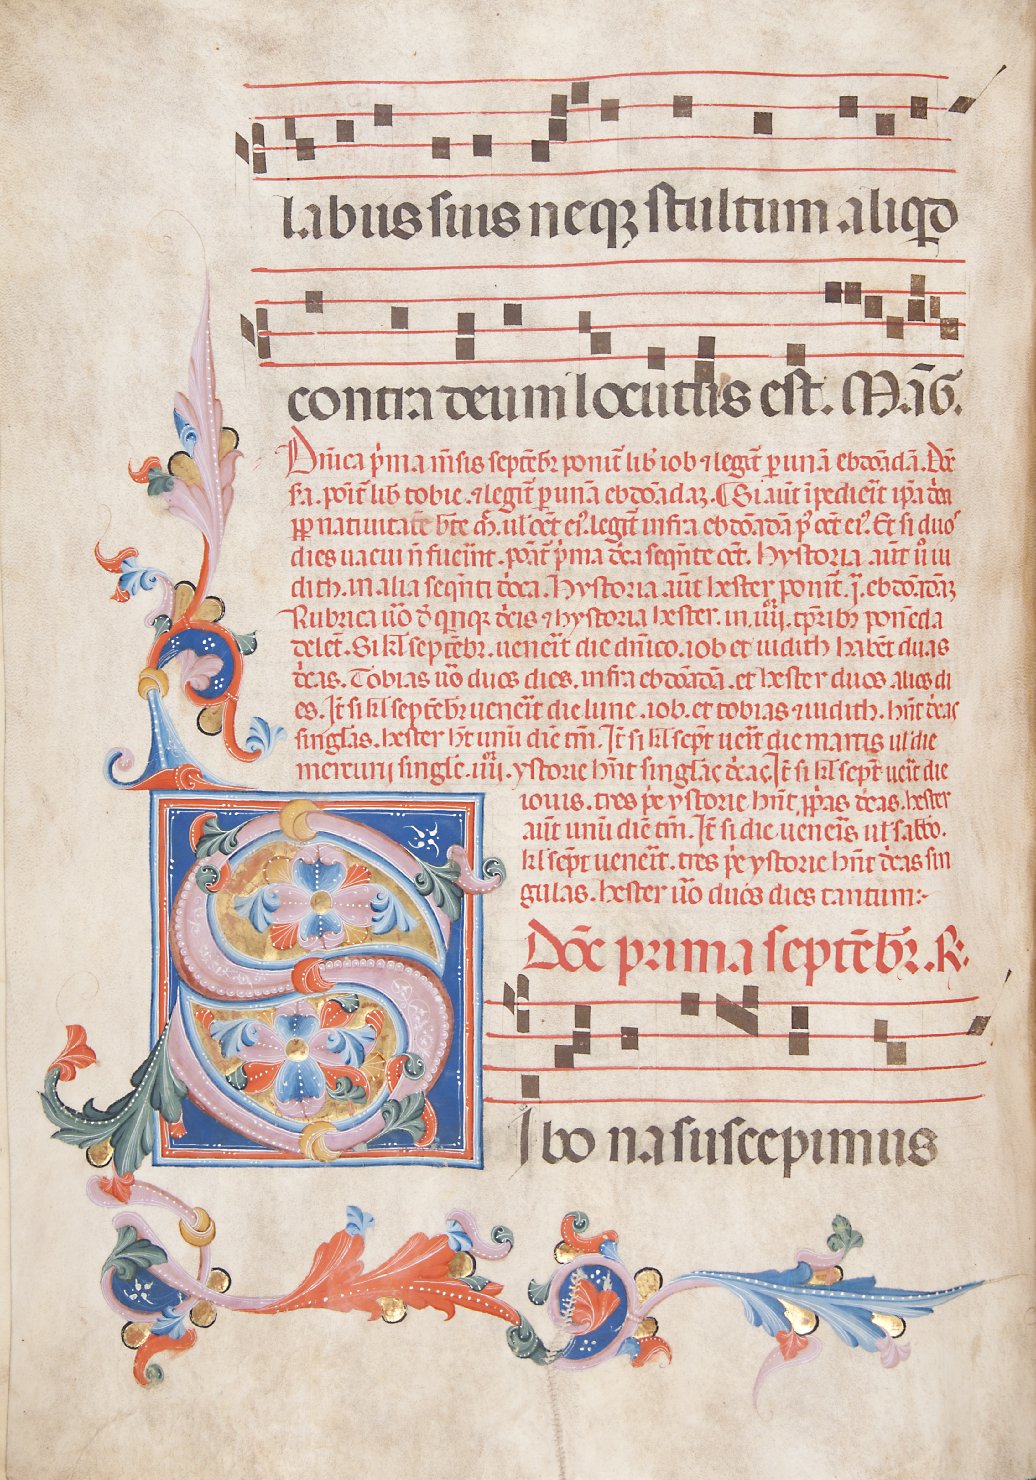 labiis suis neqȝ stultum aliqd
contra deum locutus est. Māḡ.
Dn̄ica p̓ma m̄sis septēbr ponit̄ lib̓ iob ⁊ legit̄ p unā ebdōadā. Dōē
sā. poīt̄ lib̓ tobie. ⁊ legit̄ p unā ebdōadaȝ. Si aūt īpedieīt
natiuitatē b̄te ul᷒ oct̄ ei᷒. legit̄ infra ebdōadā oct̄ ei᷒. Et si duo
dies uacui n̄ fueīnt. seqn̄te oct̄. hystoria aūt iu
dith. in alia seqn̄ti hystoria aūt hester ponit̄. ebdōadaȝ
Rubrica ⁊ hystoria hester. in. iiii.
delet̄. Si kl̄ septēbr. ueneīt die dn̄ico. iob et iudith habēt duas
Tobias u̓o duos dies. infra ebdōadā. et hester duos alios di
es. It̄ si kl̄ septēbr ueneīt die lune. iob. et tobias ⁊ iudith. hn̄t
singlas. hester h̄t unū diē tm̄. It̄ si kl̄ sept̄ ueīt die martis ul᷒ die
mercurij singlē. iiii. ystorie hn̄t singlas It̄ si kl̄ sept̄ ueīt die
iouis. tres ystorie hn̄t hester
aūt unū diē tm̄. It̄ si die ueneīs ul᷒ sabbō.
kl̄ sept̄ ueneīt. tres ystorie hn̄t sin
gulas. hester u̓o duos dies tantum:~
Dōē prima septēbr. R̶.
SI bona suscepimus